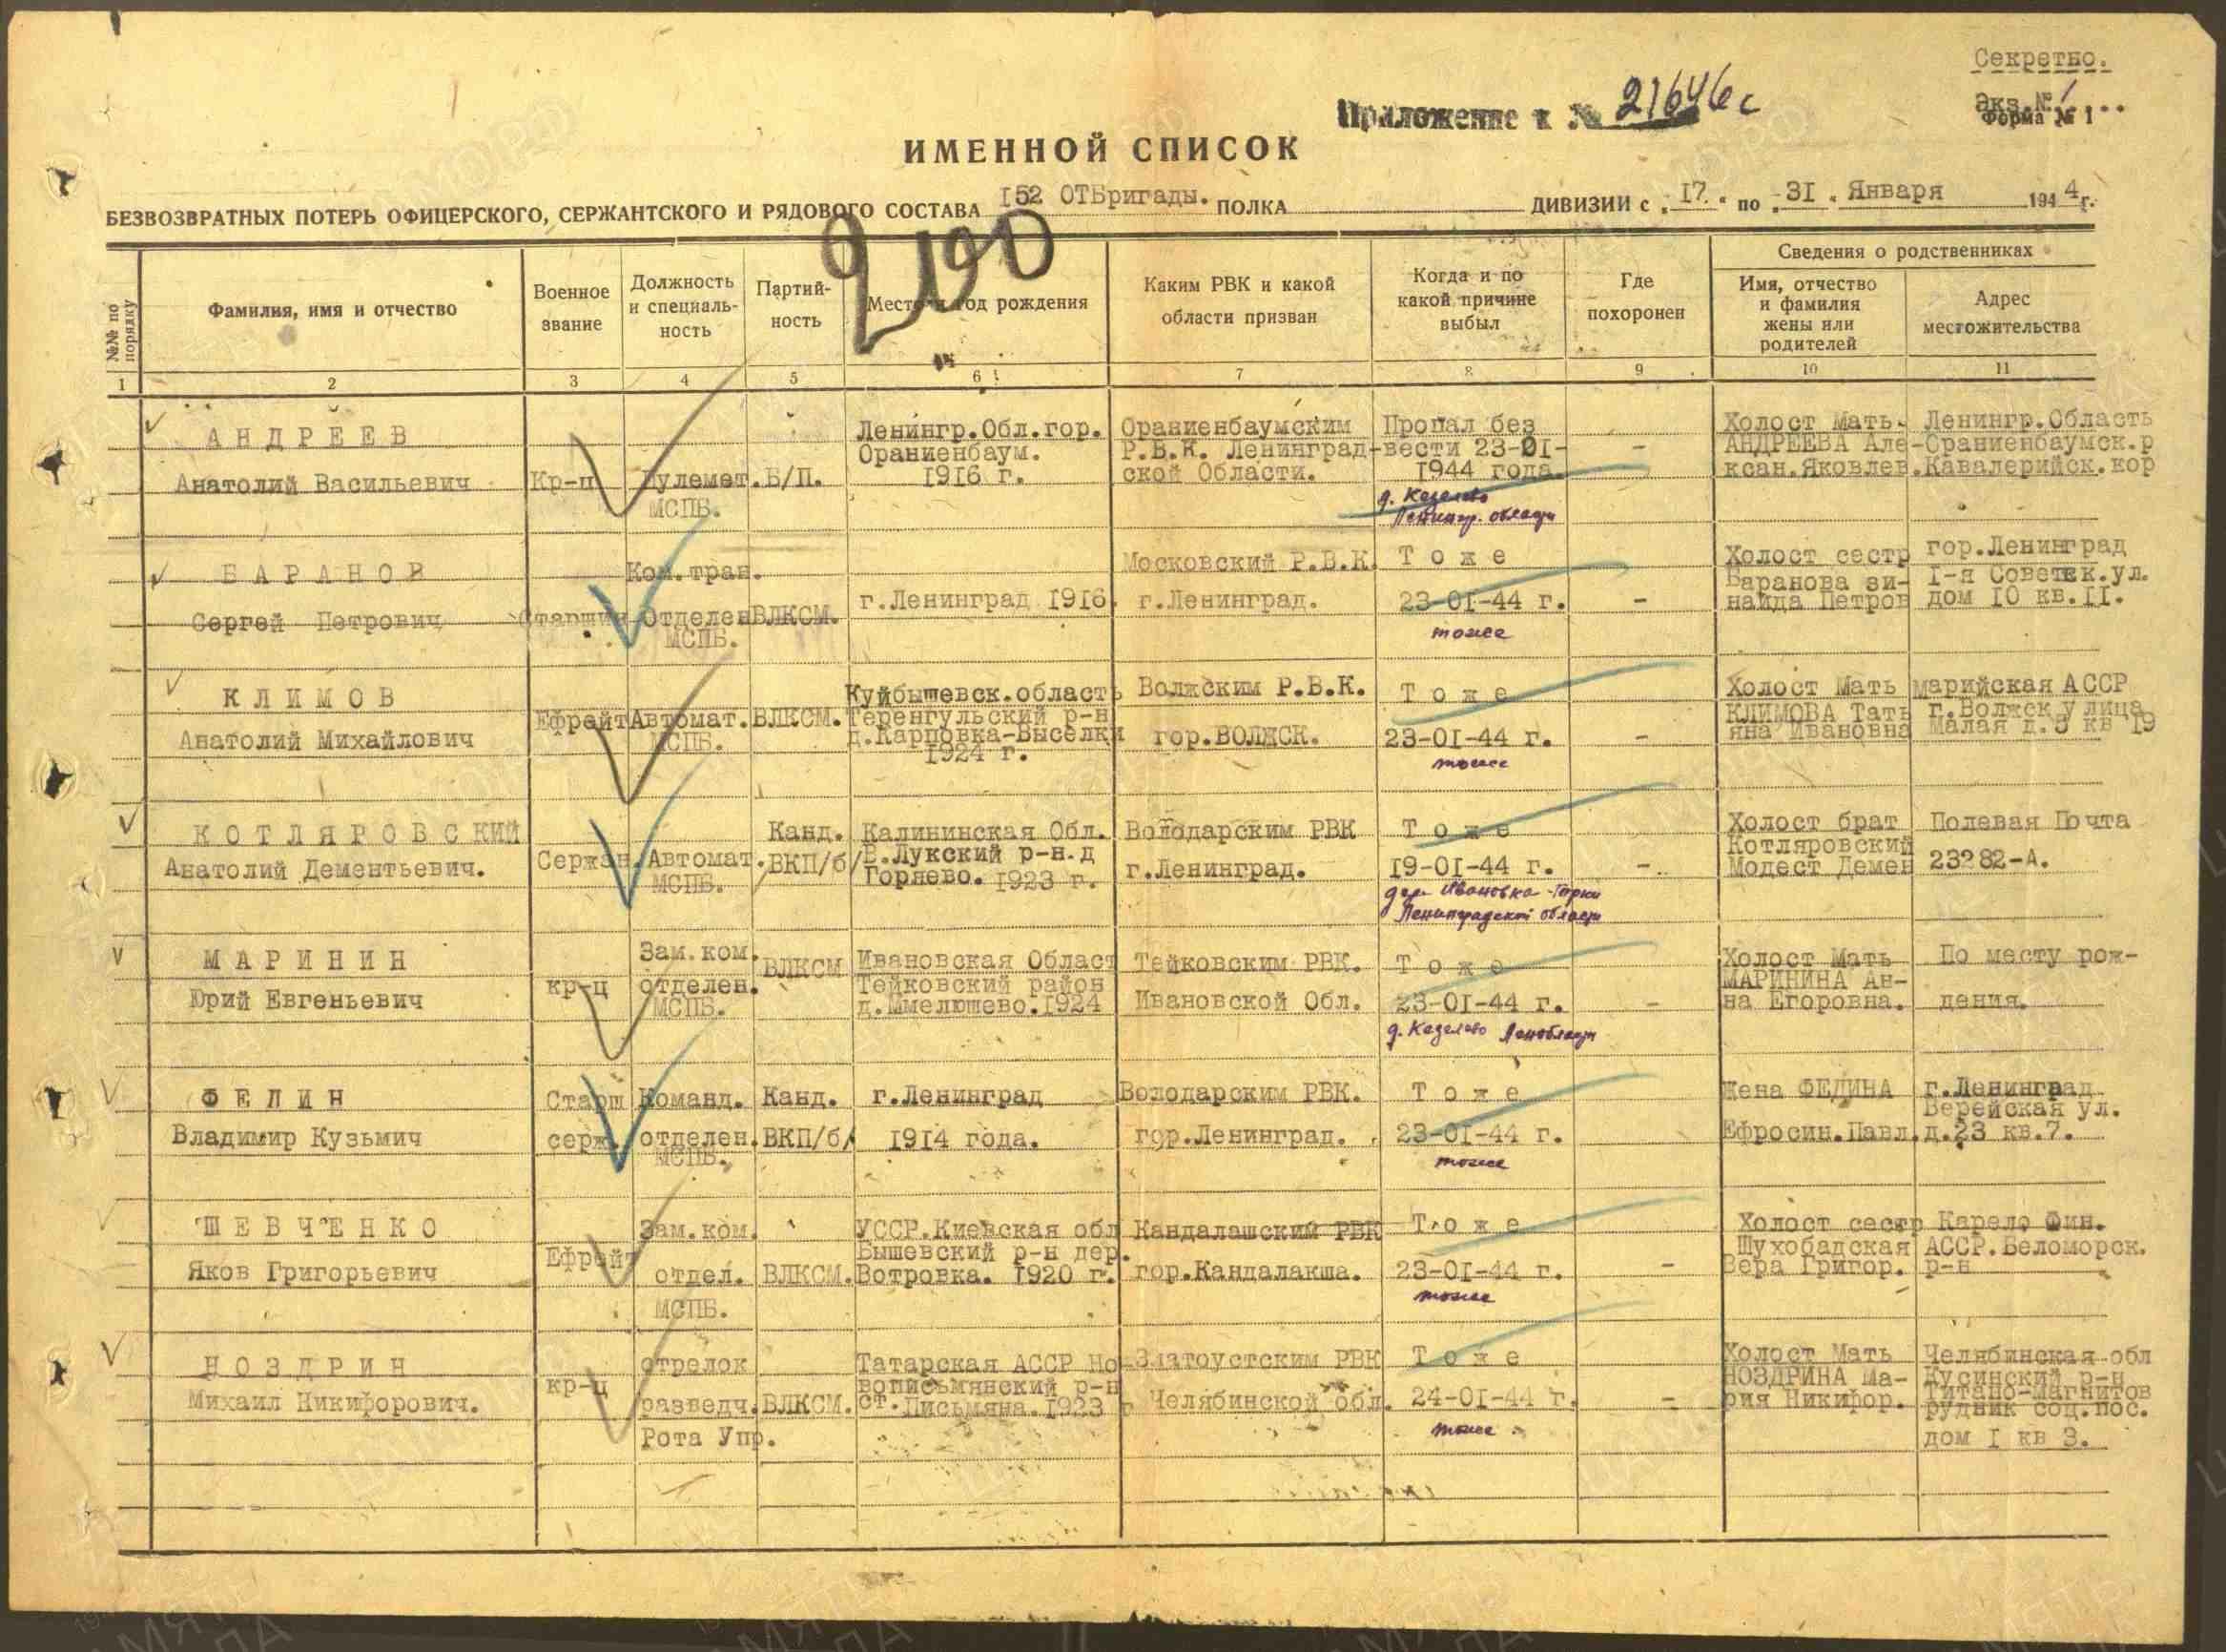 Секретно.
Экз.№ 1
Форма № 1
Приложение к № 21646с
ИМЕННОЙ СПИСОК
БЕЗВОЗВРАТНЫХ ПОТЕРЬ ОФИЦЕРСКОГО, СЕРЖАНТСКОГО И РЯДОВОГО СОСТАВА 152 ОТБригады. ПОЛКА ДИВИЗИИ с "17" по "31" Января 1944г.
2190
№№ по порядку
Фамилия, имя и отчество
Военное звание
Должность и специаль-
ность
Партий-
ность
Место и год рождения
Каким РВК и какой
области призван
Когда и по
какой причине
выбыл
Где
похоронен
Сведения о родственниках
Имя, отчество
и фамилия
жены или
родителей
Адрес
местожительства
1 2 3 4 5 6 7 8 9 10 11
АНДРЕЕВ
Анатолий Васильевич
Кр-ц
Пулемет.
МСПБ.
Б/П.
Ленингр.Обл.гор.
Ораниенбаум.
1916 г.
Ораниенбаумским
Р.В.К. Ленинград-
ской Области.
Пропал без
вести 23-01-
1944 года.
д. Кезелево
Ленингр. области
-
Холост Мать-
АНДРЕЕВА Але-
ксан.Яковлев.
Ленингр.Область
Ораниенбаумск.р
Кавалерийск.кор
БАРАНОВ
Сергей Петрович
Старшин
Ком.тран.
Отделен
МСПБ.
ВЛКСМ.
г.Ленинград 1916
Московский Р.В.К.
г.Ленинград.
Тоже
23-01-44 г.
тоже
-
Холост сестр
Баранова зи-
наида Петров
гор.Ленинград
I-я Советск.ул.
дом 10 кв.II.
КЛИМОВ
Анатолий Михайлович
Ефрейт
Автомат.
МСПБ.
ВЛКСМ.
Куйбышевск.область
Теренгульский р-н
д.Карповка-Выселки
1924 г.
Волжским Р.В.К.
гор.ВОЛЖСК.
Тоже
23-01-44 г.
тоже
-
Холост Мать
КЛИМОВА Тать
яна Ивановна
марийская АССР
г.Волжск улица
Малая д.3 кв 19
КОТЛЯРОВСКИЙ
Анатолий Дементьевич.
Сержан.
Автомат.
МСПБ.
Канд.
ВКП/б/
Калининская Обл.
В.Лукский р-н.д
Горнево. 1923 г.
Володарским РВК
г.Ленинград.
Тоже
19-01-44 г.
дер. Ивановка-Горки
Ленинградской области
-
Холост брат
Котляровский
Модест Демен
Полевая Почта
23282-А.
МАРИНИН
Юрий Евгеньевич
кр-ц
Зам.ком.
отделен.
МСПБ.
ВЛКСМ
Ивановская Област
Тейковский район
д.Имелюшево.1924
Тейковским РВК.
Ивановской Обл.
Тоже
23-01-44 г.
д. Кезелево Ленобласти
-
Холост Мать
МАРИНИНА Ан-
на Егоровна.
По месту рож-
дения.
ФЕЛИН
Владимир Кузьмич
Старш
серж.
Команд.
отделен.
МСПБ.
Канд.
ВКП/б/
г.Ленинград
1914 года.
Володарским РВК.
гор.Ленинград.
Тоже
23-01-44 г.
тоже
Жена ФЕДИНА
Ефросин.Павл.
г.Ленинград
Верейская ул.
д.23 кв.7.
ШЕВЧЕНКО
Яков Григорьевич
Ефрейт
Зам.ком.
отдел.
МСПБ.
ВЛКСМ.
УССР.Киевская обл
Бышевский р-н дер.
Вотровка. 1920 г.
Кандалашский РВК
гор.Кандалакша.
Тоже
23-01-44 г.
тоже
-
Холост сестр
Шухобадская
Вера Григор.
Карело Фин.
АССР.Беломорск.
р-н
НОЗДРИН
Михаил Никифорович.
кр-ц
стрелок
разведч.
Рота Упр.
ВЛКСМ.
Татарская АССР Но
вописьмянский р-н
ст.Письмяна.1923 г
Златоустским РВК
Челябинской обл.
Тоже
24-01-44 г.
тоже
-
Холост Мать
НОЗДРИНА Ма-
рия Никифор.
Челябинская обл
Кусинский р-н
Титано-Магнитов
рудник соц.пос.
дом I кв 3.